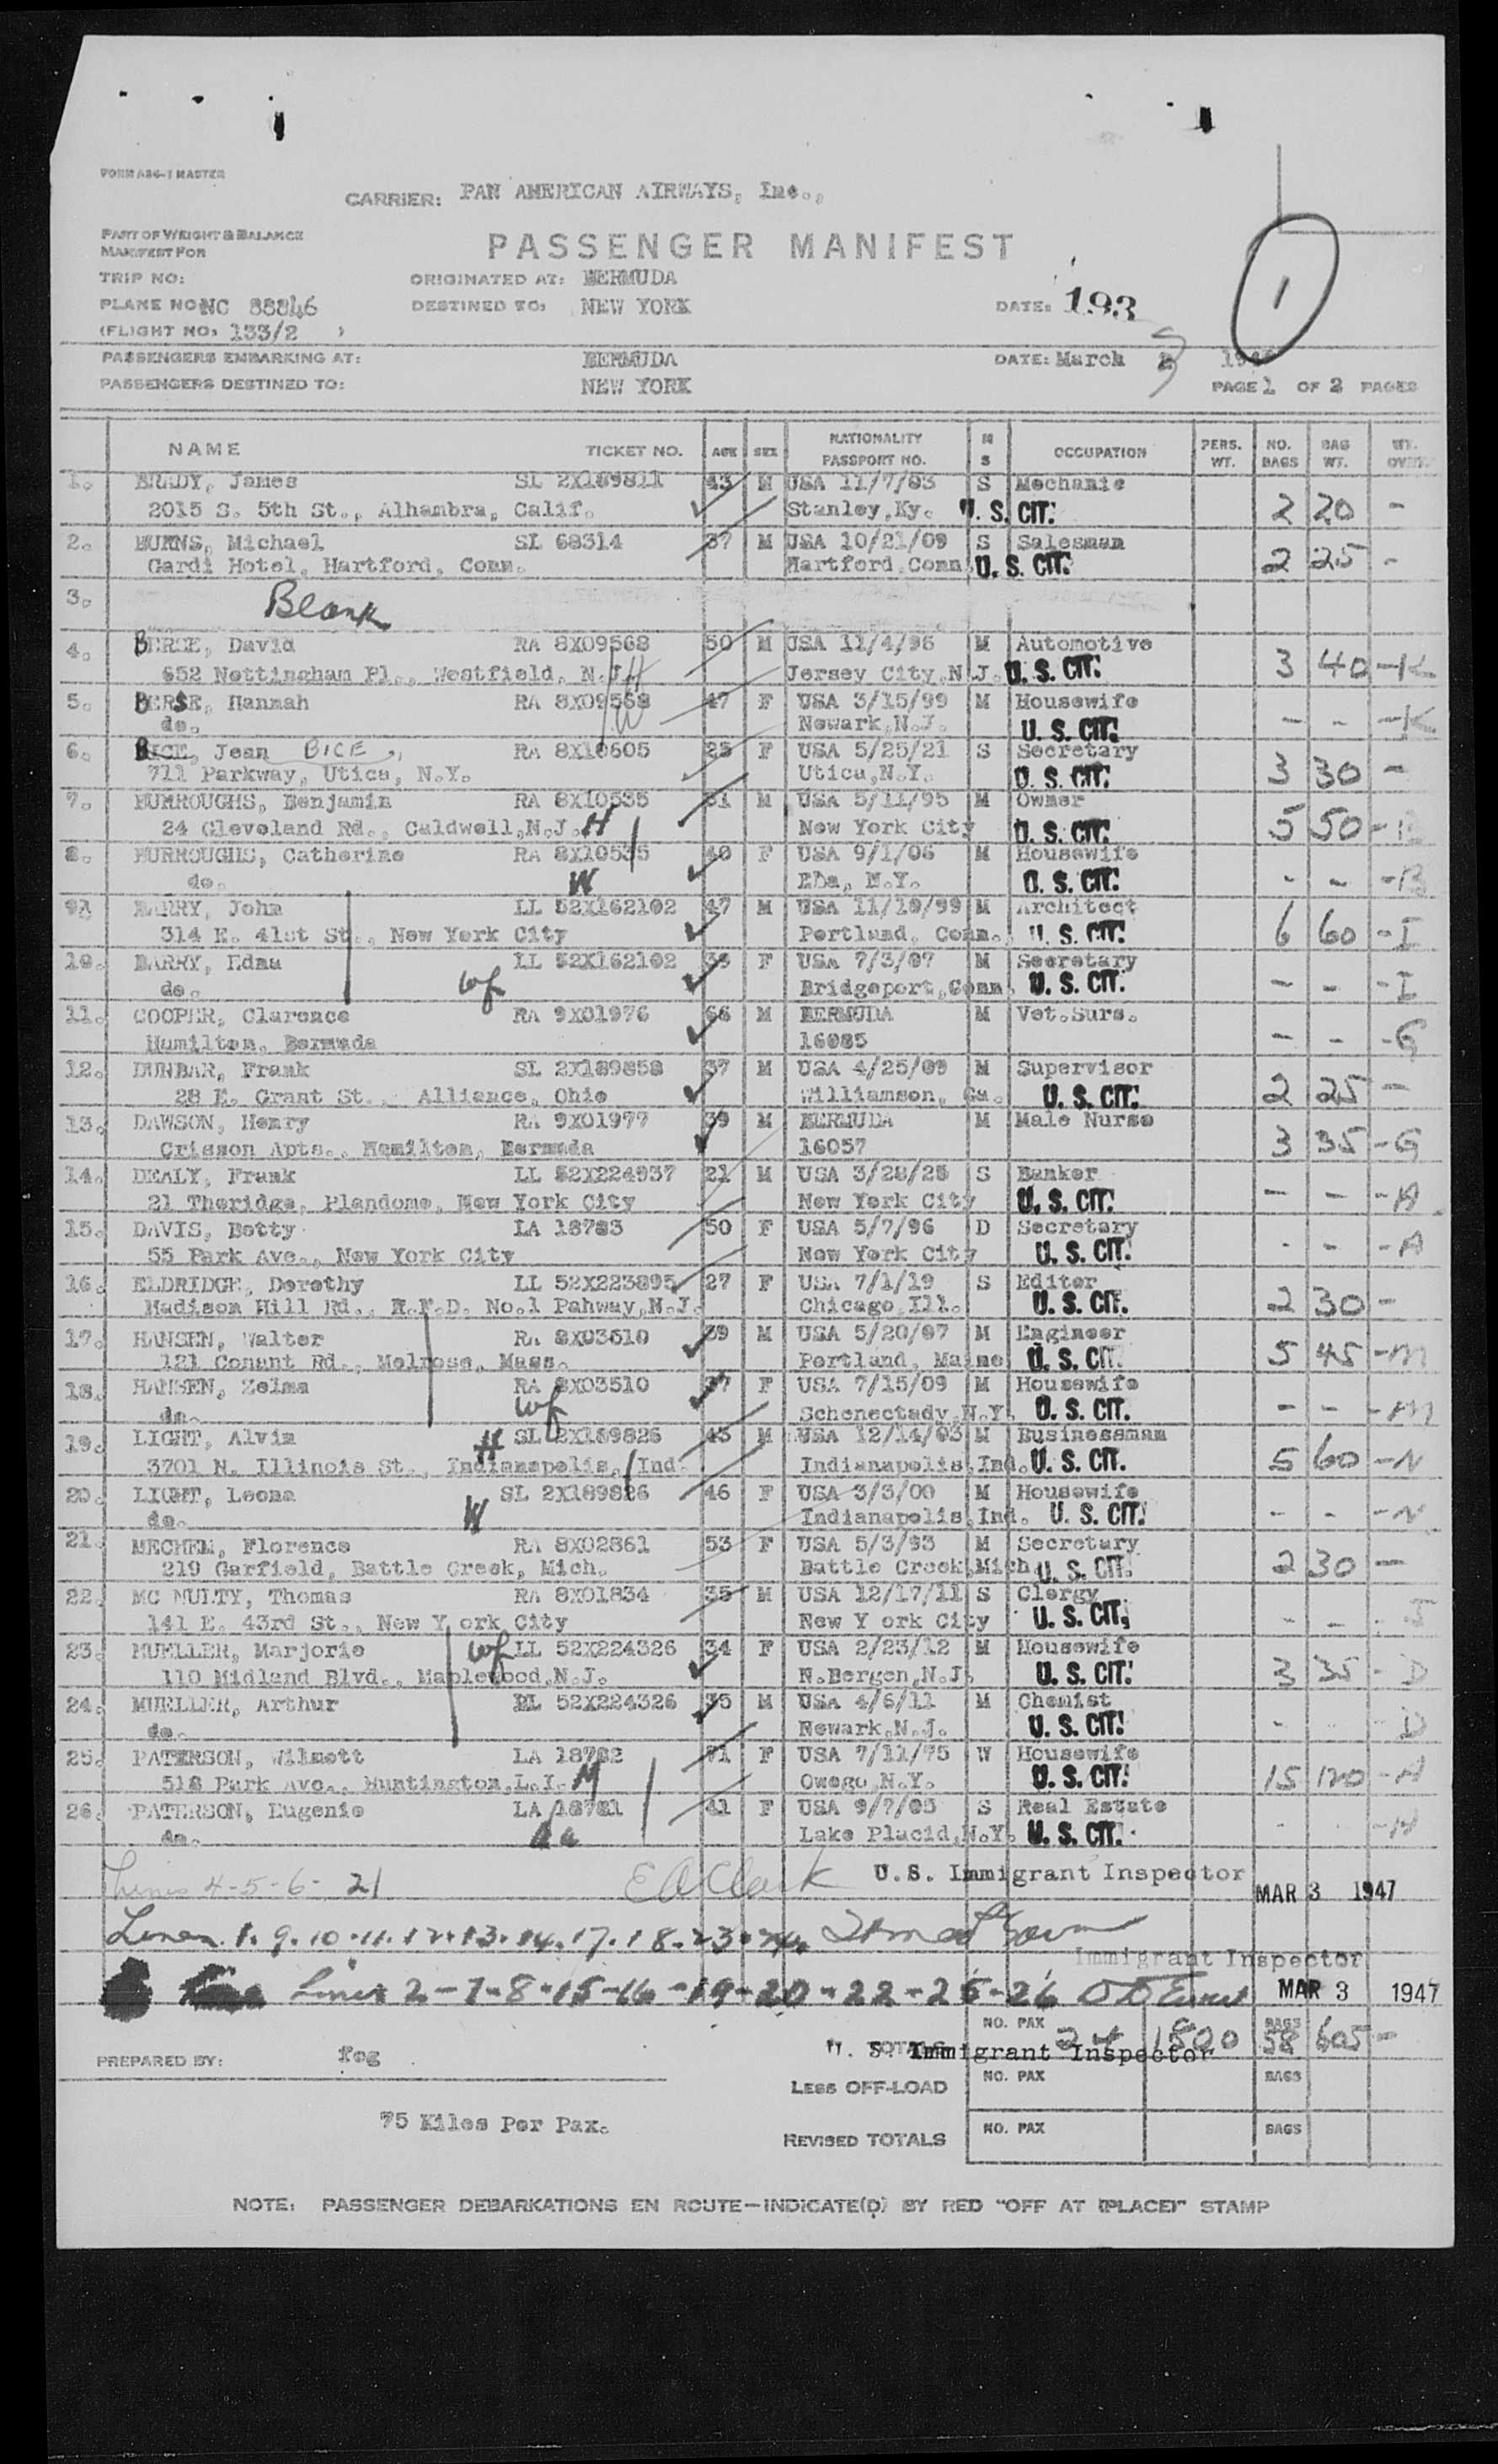 FORM A36-1 MASTER
CARRIER: PAN AMERICAN AIRWAYS, Inc.,
PART OF WEIGHT & BALANCE
MANIFEST FOR
PASSENGER MANIFEST
1
TRIP NO: ORIGINATED AT: BERMUDA
PLANE NO: NC 88846 DESTINED TO: NEW YORK DATE: 193
(FLIGHT NO: 133/2 )
PASSENGERS EMBARKING AT: BERMUDA DATE: March 3
PASSENGERS DESTINED TO: NEW YORK PAGE 1 OF 2 PAGES
NAME TICKET NO. AGE SEX NATIONALITY PASSPORT NO. M S OCCUPATION PERS. WT. NO. BAGS BAG WT. WT. OVER.
1. BRADY, James SL 2X189811 43 M USA 11/7/03 S Mechanic
2015 S. 5th St., Alhambra, Calif. Stanley, Ky. U. S. CIT. 2 20 -
2. BURNS, Michael SL 68314 37 M USA 10/21/09 S Salesman
Gardi Hotel, Hartford, Conn. Hartford, Conn U. S. CIT. 2 25 -
3. Blank
4. BERSE, David RA 8X09568 50 M USA 11/4/96 M Automotive
652 Nottingham Pl., Westfield, N.J. H Jersey City, N.J. U. S. CIT. 3 40 - K
5. BERSE, Hannah RA 8X09568 47 F USA 3/15/99 M Housewife
do. W Newark, N.J. U. S. CIT. - - - K
6. BICE, Jean BICE RA 8X10605 25 F USA 5/25/21 S Secretary
711 Parkway, Utica, N.Y. Utica, N.Y. U. S. CIT. 3 30 -
7. BURROUGHS, Benjamin RA 8X10535 51 M USA 5/11/95 M Owner
24 Cleveland Rd., Caldwell, N.J. H New York City U. S. CIT. 5 50 - B
8. BURROUGHS, Catherine RA 8X10535 40 F USA 9/1/06 M Housewife
do. W N.Y. U. S. CIT. - - - B
9. BARRY, John LL 52X162102 47 M USA 11/10/99 M Architect
314 E. 41st St., New York City Portland, Conn. U. S. CIT. 6 60 - I
10. BARRY, Edna LL 52X162102 39 F USA 7/3/07 M Secretary
do. wf Bridgeport, Conn. U. S. CIT. - - - I
11. COOPER, Clarence RA 9X01976 66 M BERMUDA M Vet.Surg.
Hamilton, Bermuda 16085 - - - G
12. DUNBAR, Frank SL 2X189858 37 M USA 4/25/09 M Supervisor
28 E. Grant St., Alliance, Ohio Williamson, Ga. U. S. CIT. 2 25 -
13. DAWSON, Henry RA 9X01977 39 M BERMUDA M Male Nurse
Crisson Apts., Hamilton, Bermuda 16057 3 35 - G
14. DEALY, Frank LL 52X224937 21 M USA 3/28/25 S Banker
21 Theridge, Plandome, New York City New York City U. S. CIT. - - - A
15. DAVIS, Betty LA 18783 50 F USA 5/7/96 D Secretary
55 Park Ave., New York City New York City U. S. CIT. - - - A
16. ELDRIDGE, Dorothy LL 52X223895 27 F USA 7/1/19 S Editor
Madison Hill Rd., R.F.D. No.1 Pahway, N.J. Chicago, Ill. U. S. CIT. 2 30 -
17. HANSEN, Walter RA 8X03510 39 M USA 5/20/07 M Engineer
121 Conant Rd., Melrose, Mass. Portland, Maine U. S. CIT. 5 45 - M
18. HANSEN, Zelma RA 8X03510 37 F USA 7/15/09 M Housewife
do. wf Schenectady, N.Y. U. S. CIT. - - - M
19. LIGHT, Alvin H SL 2X189826 43 M USA 12/14/03 M Businessman
3701 N. Illinois St., Indianapolis, Ind. Indianapolis, Ind. U. S. CIT. 5 60 - N
20. LIGHT, Leona SL 2X189826 46 F USA 3/3/00 M Housewife
do. W Indianapolis, Ind. U. S. CIT. - - - N
21. MECHEM, Florence RA 8X02861 53 F USA 5/3/93 M Secretary
219 Garfield, Battle Creek, Mich. Battle Creek, Mich U. S. CIT. 2 30 -
22. MC NULTY, Thomas RA 8X01834 35 M USA 12/17/11 S Clergy
141 E. 43rd St., New Y ork City New Y ork City U. S. CIT. - - - J
23. MUELLER, Marjorie wf LL 52X224326 34 F USA 2/23/12 M Housewife
110 Midland Blvd., Maplewood, N.J. N.Bergen, N.J. U. S. CIT. 3 35 - D
24. MUELLER, Arthur LL 52X224326 35 M USA 4/6/11 M Chemist
do. Newark, N.J. U. S. CIT. - - D
25. PATERSON, Wilmett LA 18782 71 F USA 7/11/75 W Housewife
518 Park Ave., Huntington, L.I. M Owego, N.Y. U. S. CIT. 15 120 - H
26. PATERSON, Eugenie LA 18781 41 F USA 9/7/05 S Real Estate
do. Da Lake Placid, N.Y. U. S. CIT. - - - H
Lines 4-5-6-21 E A Clark U.S. Immigrant Inspector MAR 3 1947
Lines 1. 9. 10. 11. 12. 13. 14. 17. 18. 23. 24.
Immigrant Inspector
Lines 2-7-8-15-16-19-20-22-25-26 MAR 3 1947
U. S. Immigrant Inspector
TOTALS NO. PAX 24 1800 BAGS 58 605 -
PREPARED BY: fog
LESS OFF-LOAD NO. PAX BAGS
75 Kilos Per Pax.
REVISED TOTALS NO. PAX BAGS
NOTE: PASSENGER DEBARKATIONS EN ROUTE—INDICATE(D) BY RED "OFF AT (PLACE)" STAMP